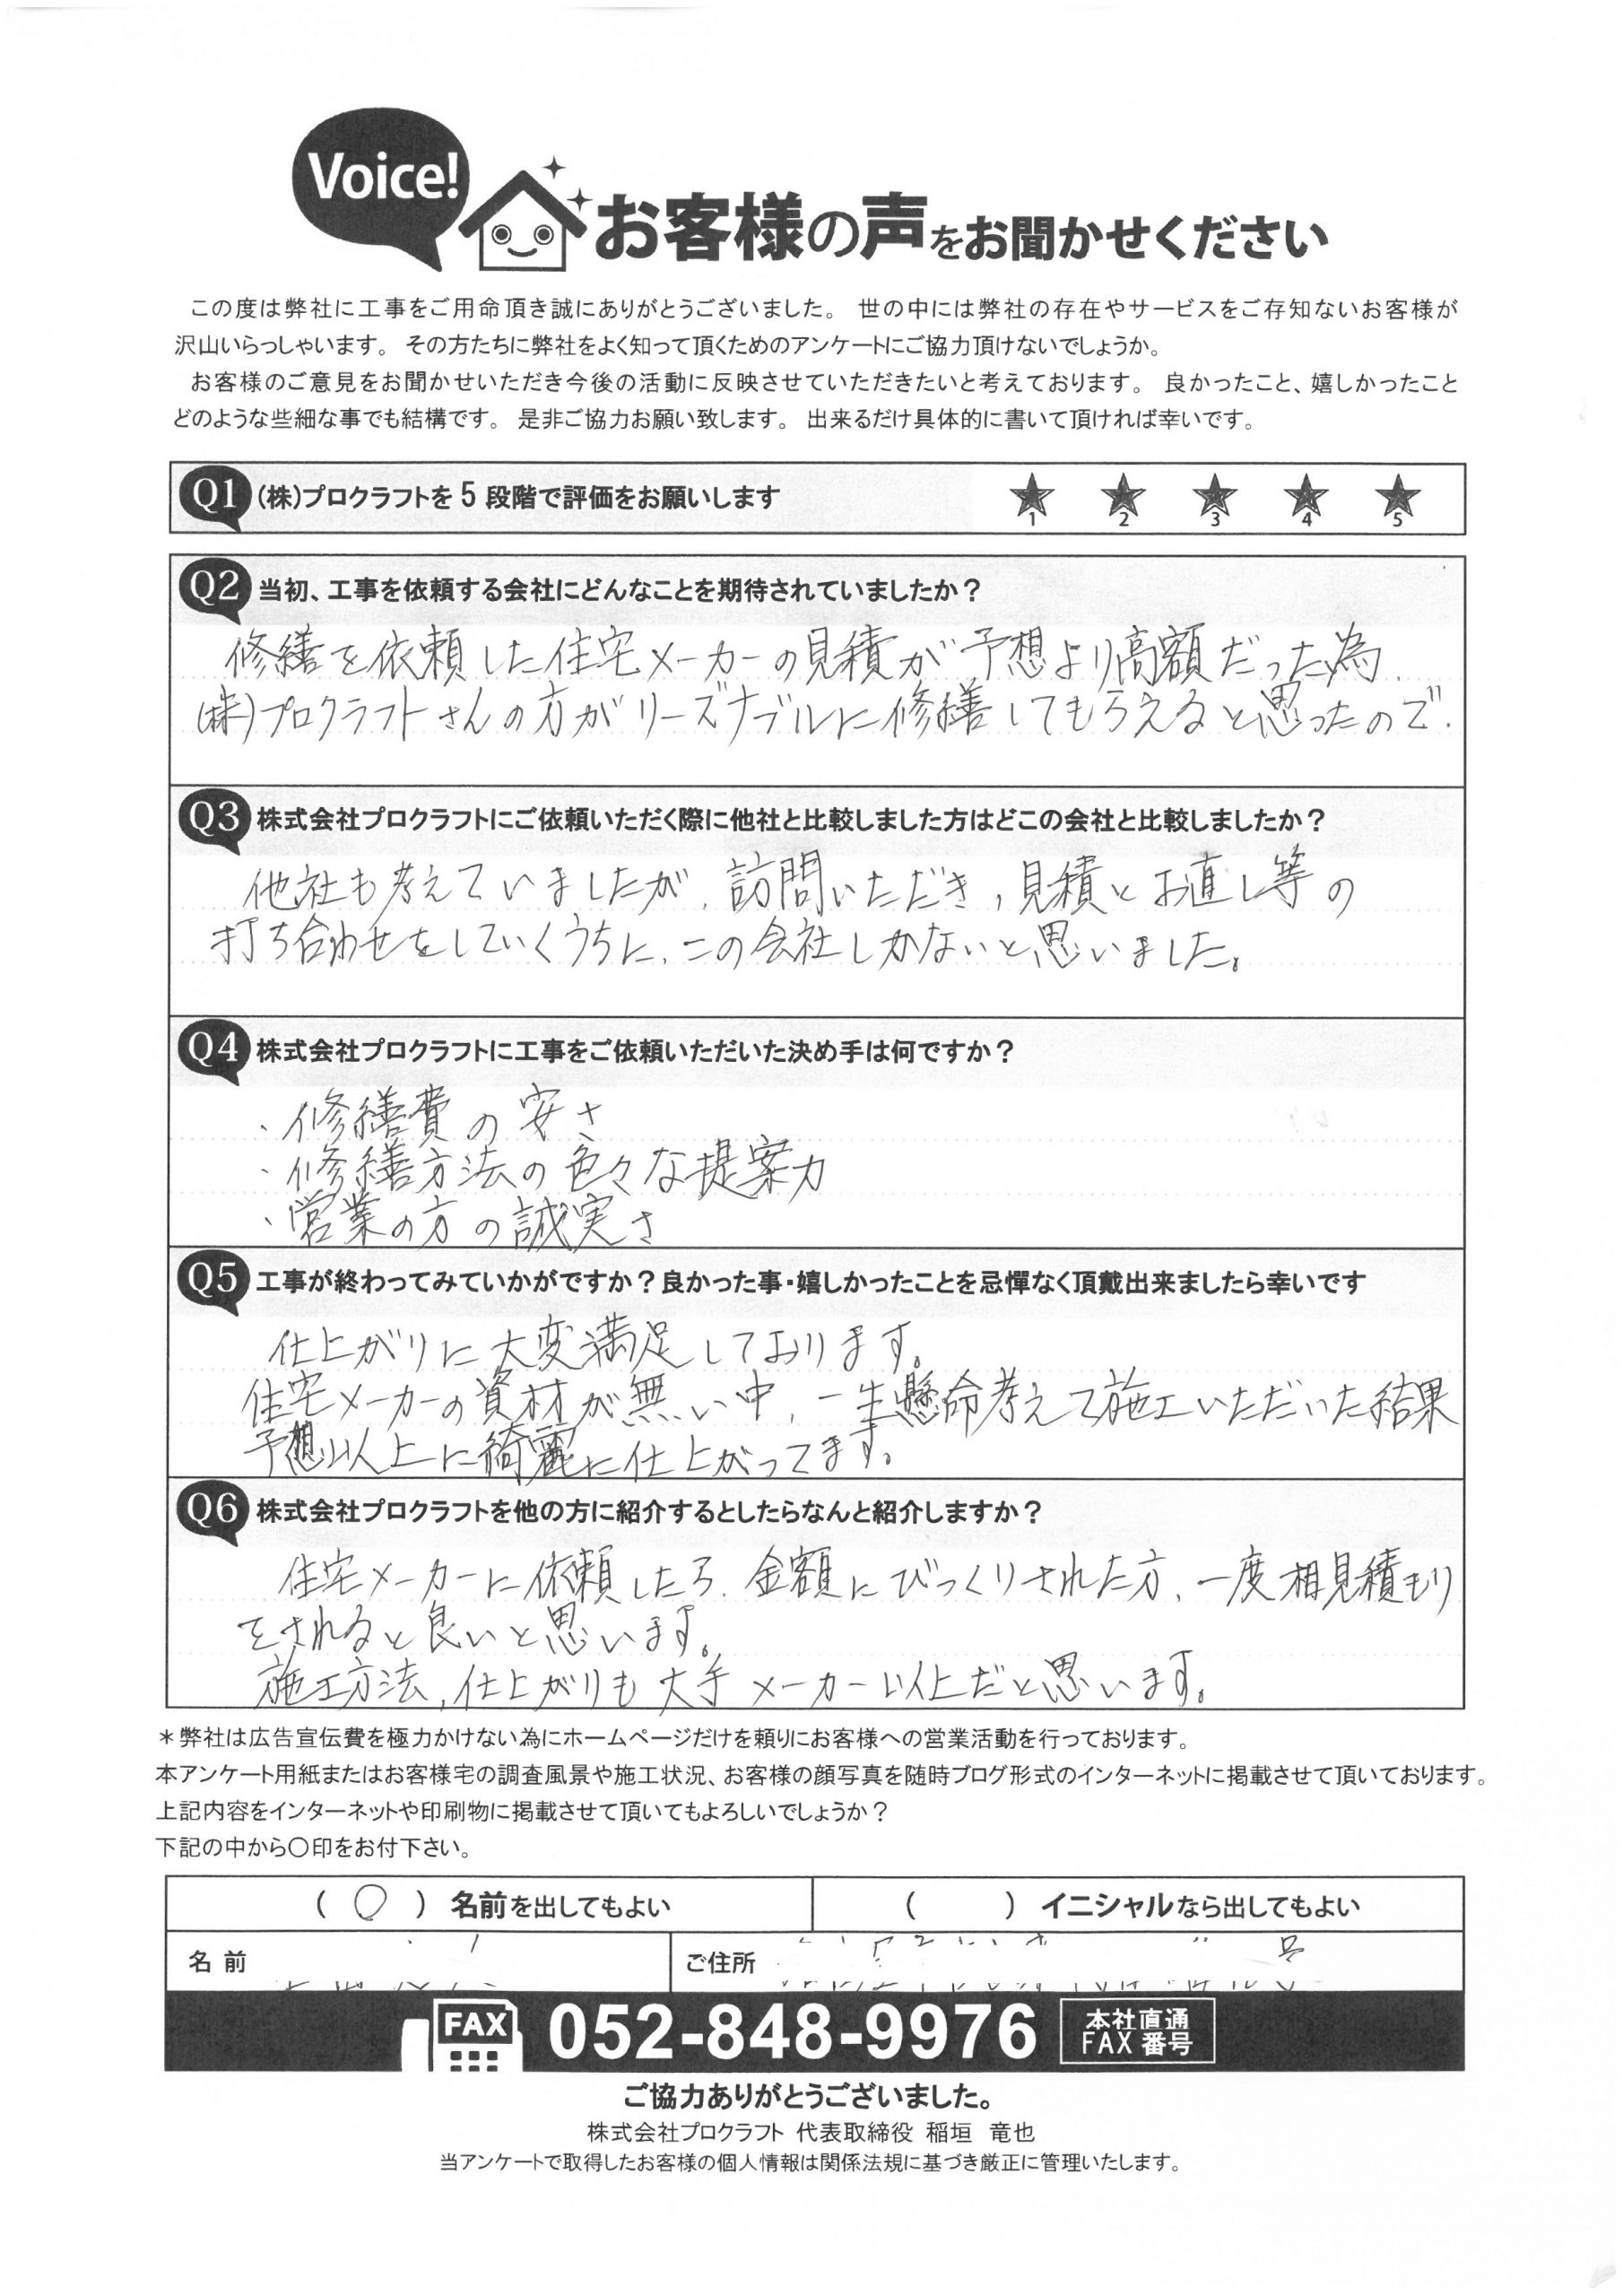 Voice!
お客様の声をお聞かせください
この度は弊社に工事をご用命頂き誠にありがとうございました。 世の中には弊社の存在やサービスをご存知ないお客様が
沢山いらっしゃいます。 その方たちに弊社をよく知って頂くためのアンケートにご協力頂けないでしょうか。
お客様のご意見をお聞かせいただき今後の活動に反映させていただきたいと考えております。 良かったこと、嬉しかったこと
どのような些細な事でも結構です。 是非ご協力お願い致します。 出来るだけ具体的に書いて頂ければ幸いです。
Q1 (株)プロクラフトを5段階で評価をお願いします
1 2 3 4 5
Q2 当初、工事を依頼する会社にどんなことを期待されていましたか？
修繕を依頼した住宅メーカーの見積が予想より高額だった為、
(株)プロクラフトさんの方がリーズナブルに修繕してもらえると思ったので.
Q3 株式会社プロクラフトにご依頼いただく際に他社と比較しました方はどこの会社と比較しましたか？
他社も考えていましたが、訪問いただき,見積とお直し等の
打ち合わせをしていくうちに、この会社しかないと思いました。
Q4 株式会社プロクラフトに工事をご依頼いただいた決め手は何ですか？
・修繕費の安さ
・修繕方法の色々な提案力
・営業の方の誠実さ
Q5 工事が終わってみていかがですか？良かった事・嬉しかったことを忌憚なく頂戴出来ましたら幸いです
仕上がりに大変満足しております。
住宅メーカーの資材が無い中、一生懸命考えて施工いただいた結果
予想以上に綺麗に仕上がってます。
Q6 株式会社プロクラフトを他の方に紹介するとしたらなんと紹介しますか？
住宅メーカーに依頼したら、金額にびっくりされた方、一度相見積もり
をされると良いと思います。
施工方法,仕上がりも大手メーカー以上だと思います。
＊弊社は広告宣伝費を極力かけない為にホームページだけを頼りにお客様への営業活動を行っております。
本アンケート用紙またはお客様宅の調査風景や施工状況、お客様の顔写真を随時ブログ形式のインターネットに掲載させて頂いております。
上記内容をインターネットや印刷物に掲載させて頂いてもよろしいでしょうか？
下記の中から〇印をお付下さい。
（ 〇 ）名前を出してもよい （　　）イニシャルなら出してもよい
名 前 ご住所
FAX 052-848-9976 本社直通
FAX 番号
ご協力ありがとうございました。
株式会社プロクラフト 代表取締役 稲垣 竜也
当アンケートで取得したお客様の個人情報は関係法規に基づき厳正に管理いたします。